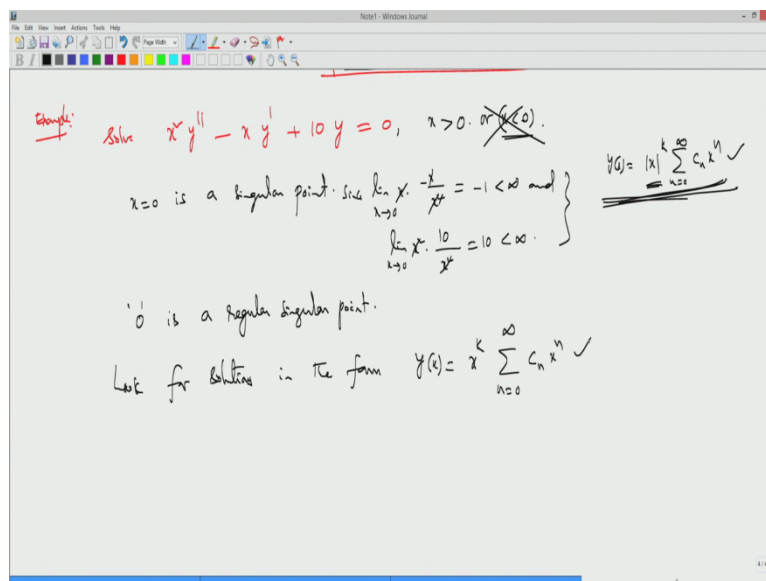 Note1 - Windows Journal
File Edit View Insert Actions Tools Help
Page Width
B I
Example: Solve x² y'' - x y' + 10 y = 0, x > 0. or (x < 0).
y(x) = |x|^k ∑_{n=0}^{∞} c_n x^n ✓
x=0 is a singular point. since lim_{x→0} x · -x/x² = -1 < ∞ and
lim_{x→0} x² · 10/x² = 10 < ∞.
'0' is a regular singular point.
Look for solutions in the form y(x) = x^k ∑_{n=0}^{∞} c_n x^n ✓